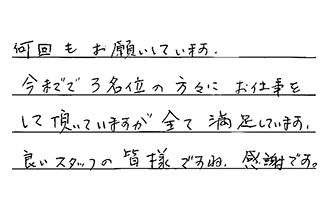 何回もお願いしています.
今までで3名位の方々にお仕事を
して頂いていますが全て満足しています.
良いスタッフの皆様ですね. 感謝です。